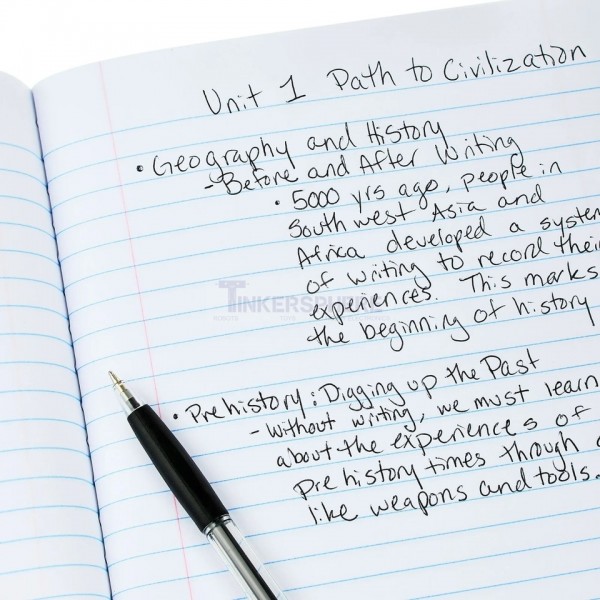 Unit 1 Path to Civilization
• Geography and History
- Before and After Writing
• 5000 yrs ago, people in
South west Asia and
Africa developed a system
of writing to record their
experiences. This marks
the beginning of history
TINKERSPHERE
• Prehistory: Digging up the Past
- without writing, we must learn
about the experiences of
pre history times through
like weapons and tools.